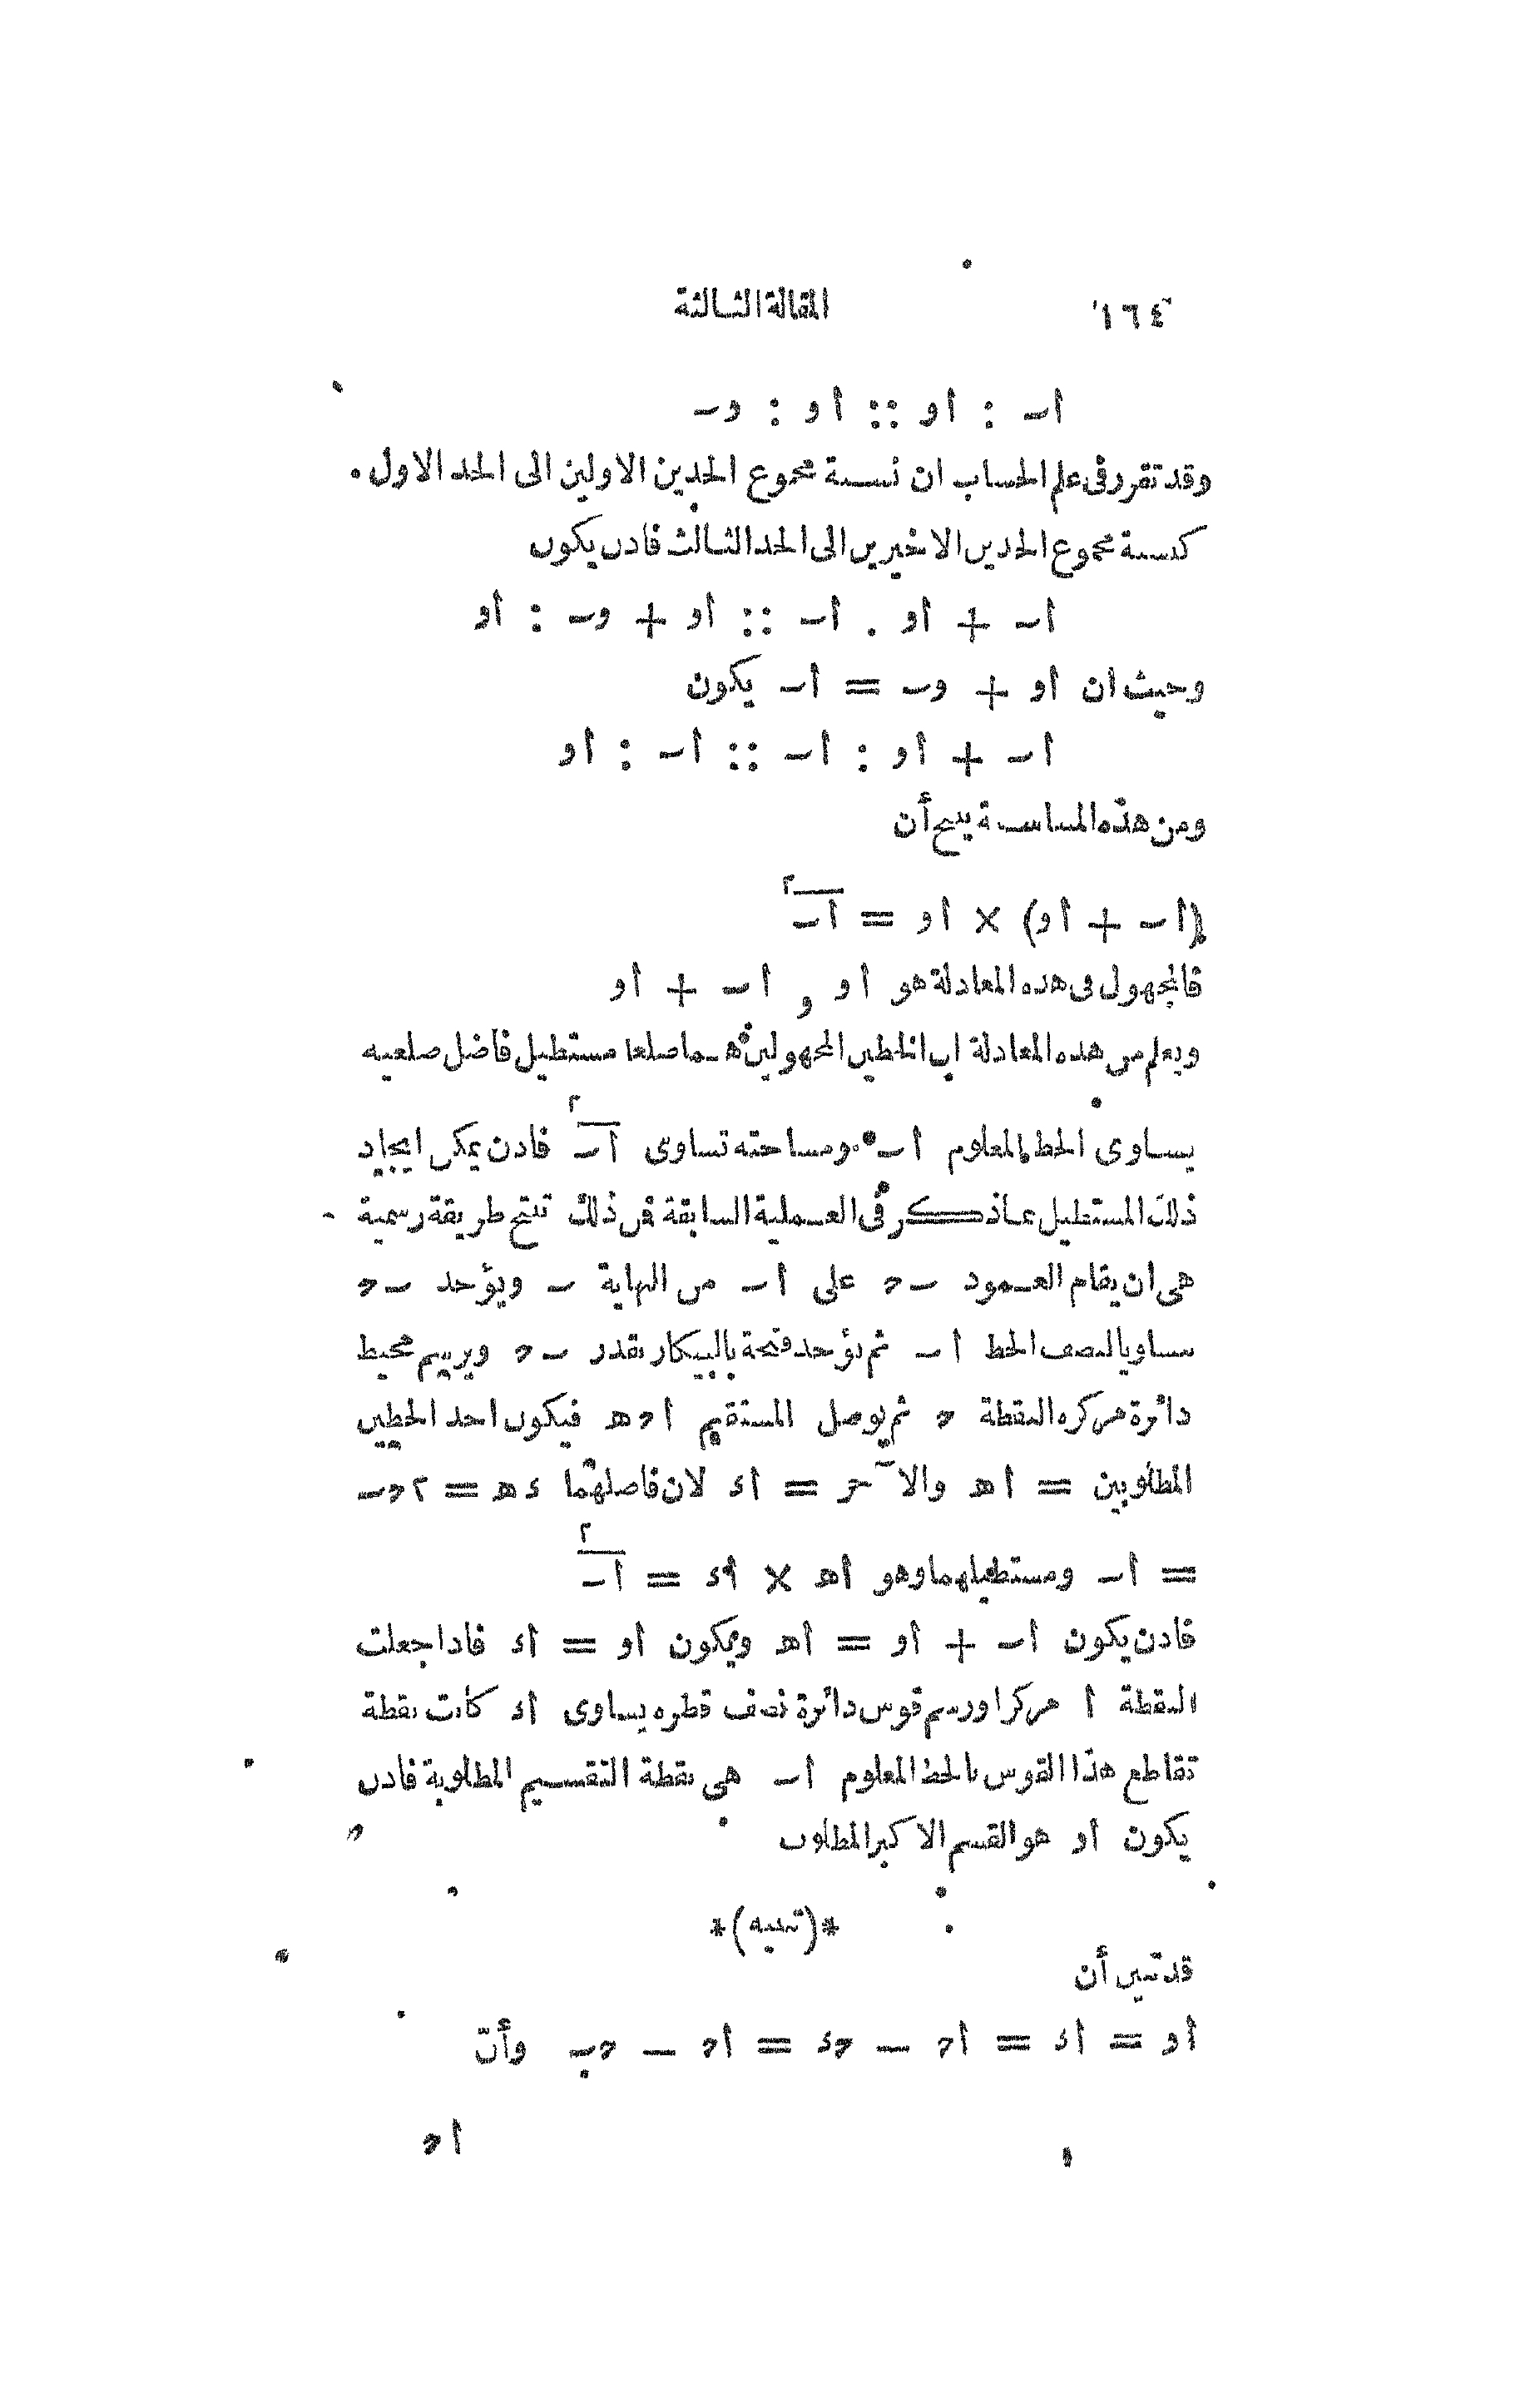 ١٦٤ المقالة الثالثة
اب : او :: او : وب
وقد تقرر فى علم الحساب ان نسبة مجموع الحدين الاولين الى الحد الاول
كنسبة مجموع الحدين الاخيرين الى الحد الثالث فاذن يكون
اب + او : اب :: او + وب : او
وحيث ان او + وب = اب يكون
اب + او : اب :: اب : او
ومن هذه المناسبة ينتج أن
(اب + او) × او = اب٢
فالمجهول فى هذه المعادلة هو او و اب + او
ويعلم من هذه المعادلة ان الخطين المجهولين هـما ضلعا مستطيل فاضل ضلعيه
يساوى الخط المعلوم اب ومساحته تساوى اب٢ فاذن يمكن ايجاد
ذلك المستطيل بماذكر فى العـملية السابقة فمن ذلك تنتج طريقة رسمية
هى ان يقام العـمود بح على اب من النهاية ب ويؤخذ بح
مساويا لنصف الخط اب ثم تؤخذ فتحة بالبيكار بقدر بح ويرسم محيط
دائرة مركزه النقطة ح ثم يوصل المستقيم احه فيكون احد الخطين
المطلوبين = اه والاخر = اء لان فاضلهما ءه = ٢حب
= اب ومستطيلهما وهو اه × اء = اب٢
فاذن يكون اب + او = اه ويكون او = اء فاذا جعلت
النقطة ا مركزا ورسم قوس دائرة نصف قطره يساوى اء كانت نقطة
تقاطع هذا القوس بالخط المعلوم اب هى نقطة التقسيم المطلوبة فاذن
يكون او هو القسم الاكبر المطلوب
*(تنبيه)*
قد تبين أن
او = اء = اح – حء = اح – حب وأنّ
اح